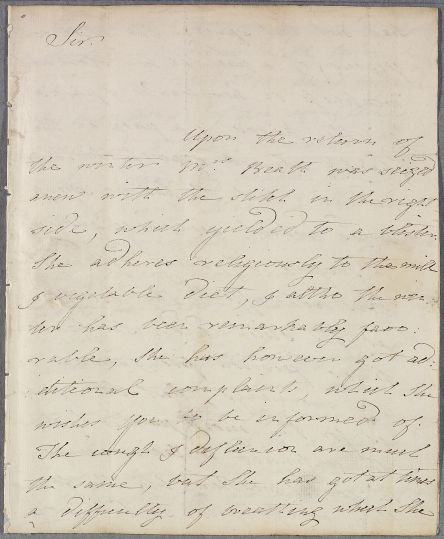 Sir.
Upon the return of
the winter Mrs. Breath was seized
anew with the stitch in the right
side, which yielded to a blister.
She adheres religiously to the milk
& vegetable diet, & altho the win
ter has been remarkably favo:
rable, She has however got ad:
ditional complaints, which She
wishes you to be informed of.
The cough & difluxion are much
the same, but She has got at times
a difficulty of breathing when She